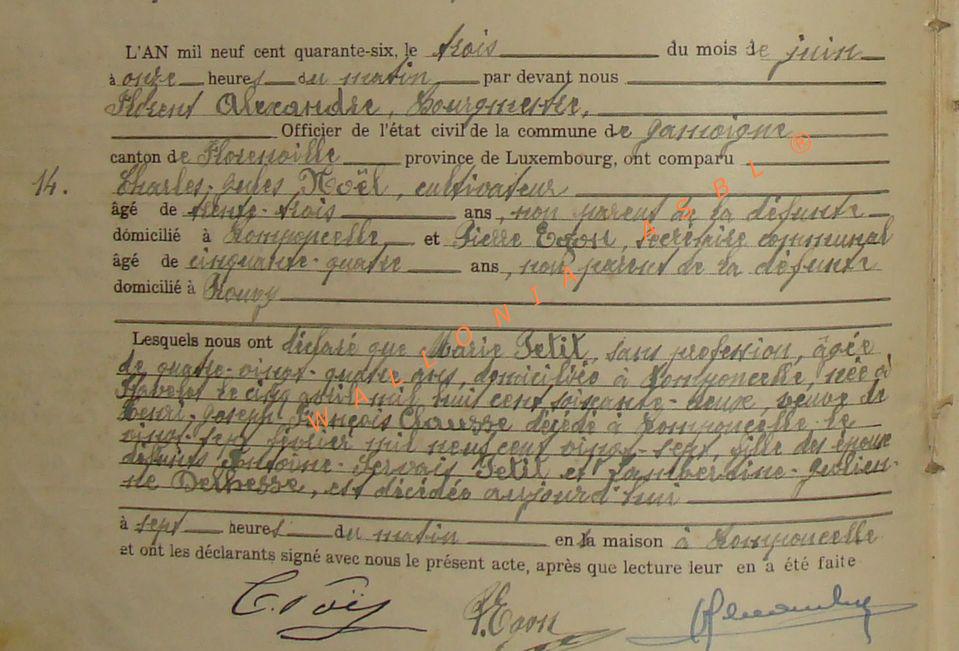 L'AN mil neuf cent quarante-six, le trois du mois de juin
à onze heures du matin par devant nous
Florent Alexandre, Bourgmestre,
Officier de l'état civil de la commune de Jamoigne
canton de Florenville province de Luxembourg, ont comparu
14. Charles-Jules Noël, cultivateur
âgé de trente-trois ans, non parent de la défunte
domicilié à Romponcelle, et Pierre Egon, secrétaire communal
âgé de cinquante-quatre ans, non parent de la défunte
domicilié à
Lesquels nous ont déclaré que Marie Petit, sans profession, âgée
de quatre-vingt-quatre ans, domiciliée à Romponcelle, née à
le cinq avril mil huit cent soixante-deux, veuve de
Henri-Joseph-François Clausse décédé à Romponcelle, le
vingt-sept février mil neuf cent vingt-sept, fille des époux
défunts Antoine-Servais Petit et Lambertine-Julien-
ne, est décédée aujourd'hui
à sept heures du matin en la maison à Romponcelle
et ont les déclarants signé avec nous le présent acte, après que lecture leur en a été faite
C. Noël P. Egon Alexandre
WALLONIA ASBL ®